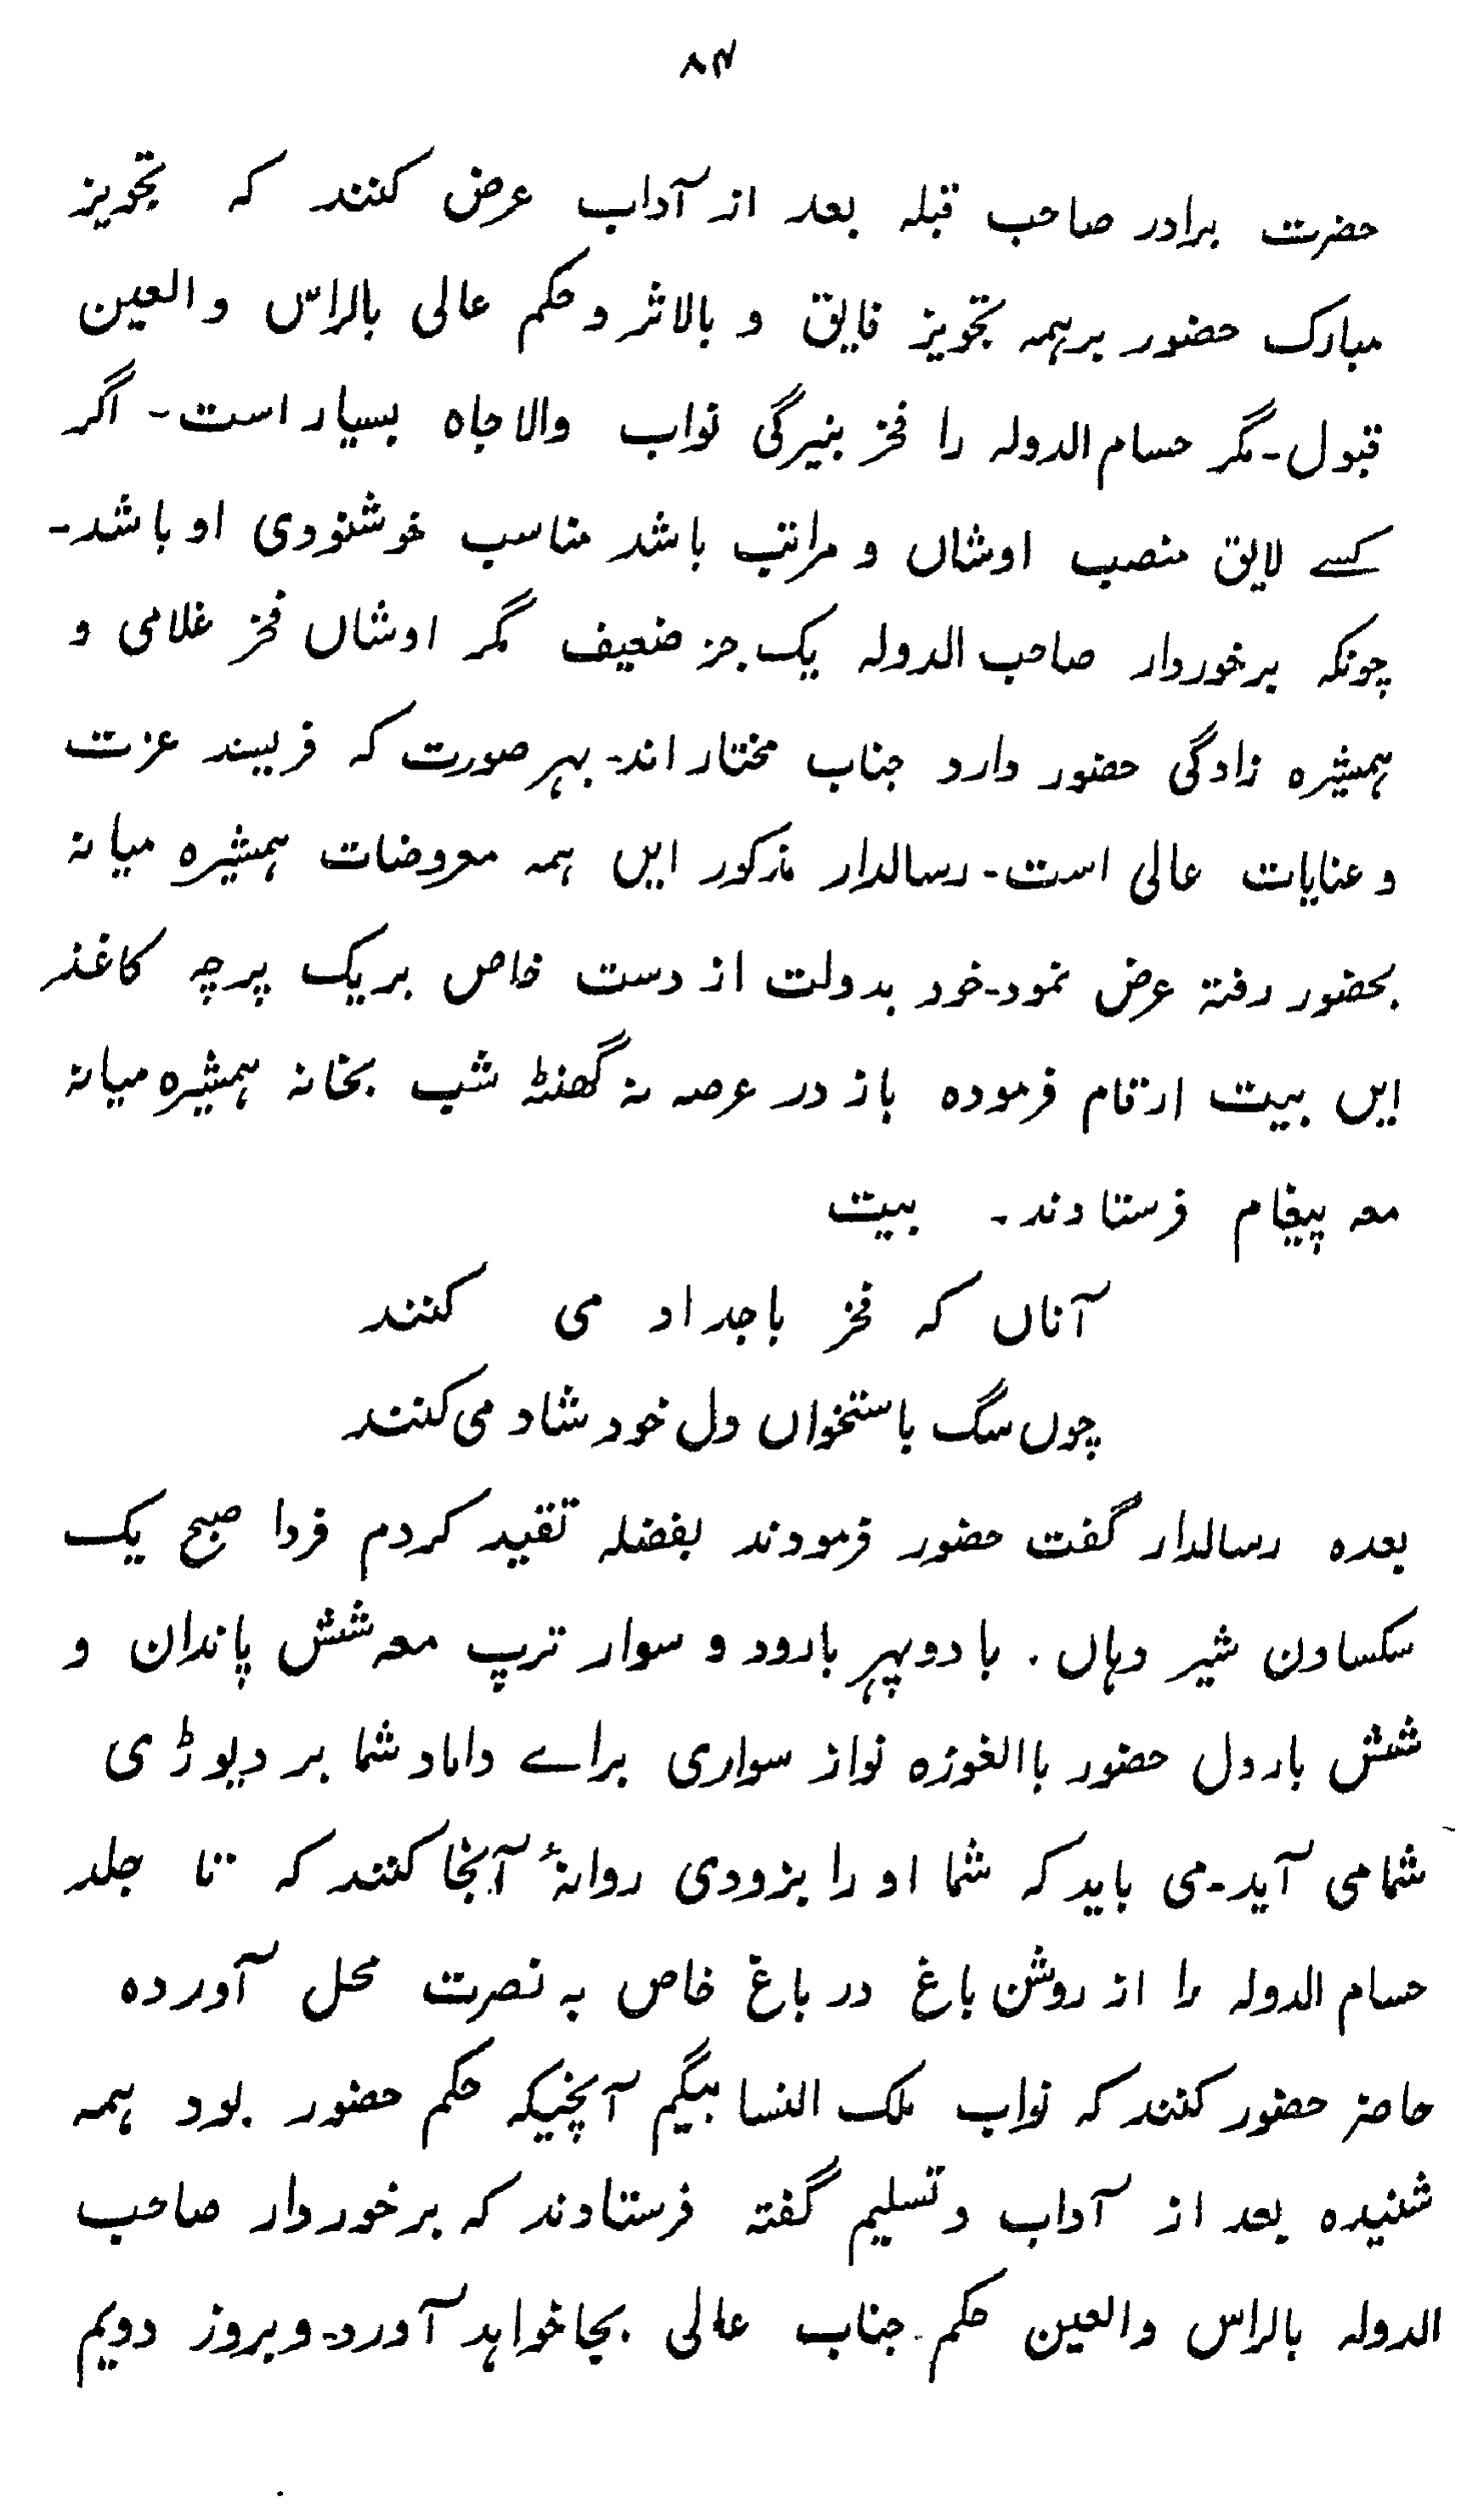 ۸۴
حضرت برادر صاحب قبلہ بعد از آداب عرض کنند کہ تجویز
مبارک حضور برہمہ تجویز فایق و بالاثر و حکم عالی بالراس والعین
قبول۔ مگر حسام الدولہ را فخر بنیرگی نواب والاجاہ بسیار است۔ اگر
کسے لایق منصب اوشاں و مراتب باشد مناسب خوشنودی او باشد۔
چونکہ برخوردار صاحب الدولہ یک جز ضعیف مگر اوشاں فخر غلامی و
ہمشیرہ زادگی حضور دارد جناب مختار اند۔ بہر صورت کہ فریسند عزت
و عنایات عالی است۔ رسالدار مذکور ایں ہمہ معروضات ہمشیرہ میانہ
بحضور رفتہ عرض نمود۔ خود بدولت از دست خاص بریک پرچہ کاغذ
ایں بیت ارقام فرمودہ باز در عرصہ نہ گھنٹہ شب بخانہ ہمشیرہ میانہ
معہ پیغام فرستادند۔ بیت
آناں کہ فخر باجداد می کنند
چوں سگ باستخواں دل خود شاد می کنند
بعدہ رسالدار گفت حضور فرمودند بفضلہ تقید کردم فردا صبح یک
سکسادن شیر دہاں. با دوپہر بارود و سوار ترپ معہ شش پاندان و
شش باردل حضور باالغوزہ نواز سواری براے داماد شما بر دیوڑی
شمامی آید۔ می باید کہ شما او را بزودی روانۂ آنجا کنند کہ تا جلد
حسام الدولہ را از روشن باغ در باغ خاص بہ نصرت محل آوردہ
حاضر حضور کنند کہ نواب ملک النسا بیگم آنچنیکہ حکم حضور بود ہمہ
شنیدہ بعد از آداب و تسلیم گفتہ فرستادند کہ برخوردار صاحب
الدولہ بالراس والعین حکم جناب عالی بجا خواہد آورد۔ و بروز دویم